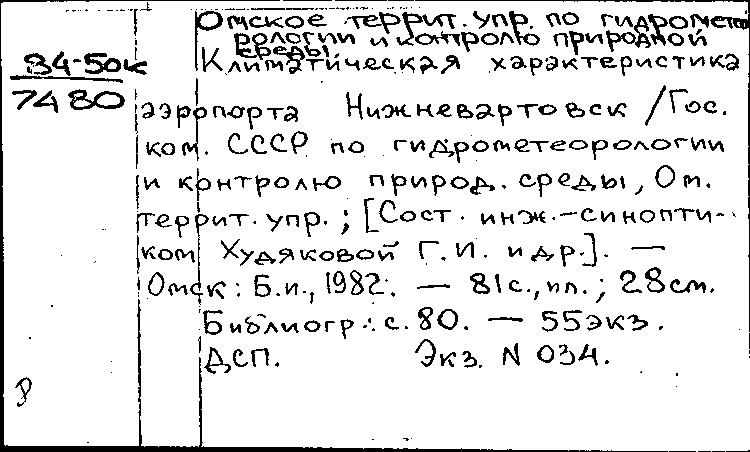 Омское террит. упр. по гидромете
рологии и контролю природной
среды
84-50к
7480
Климатическая характеристика
аэропорта Нижневартовск / Гос.
ком. СССР по гидрометеорологии
и контролю природ. среды, Ом.
террит. упр. ; [Сост. инж.-синопти-
ком Худяковой Г.И. и др.]. —
Омск : Б.и., 1982. — 81с., ил. ; 28см.
Библиогр.: с. 80. — 55экз.
ДСП. Экз. N 034.
8